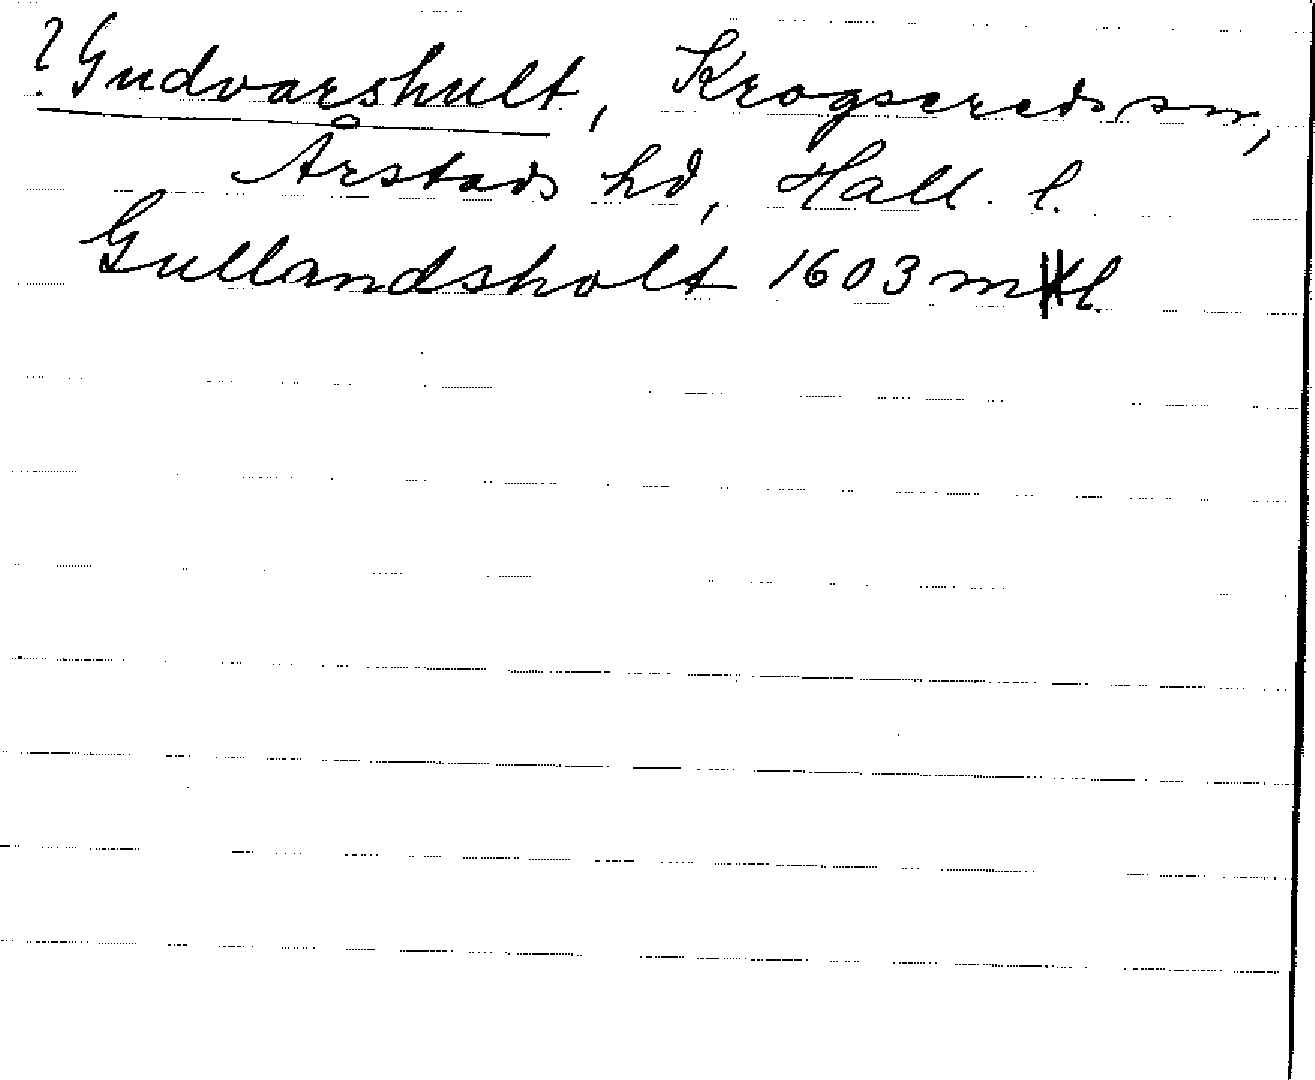 ? Gudvarshult, Krogsereds sn,
Årstads hd, Hall. l.
Gullandsholt 1603 mtl.